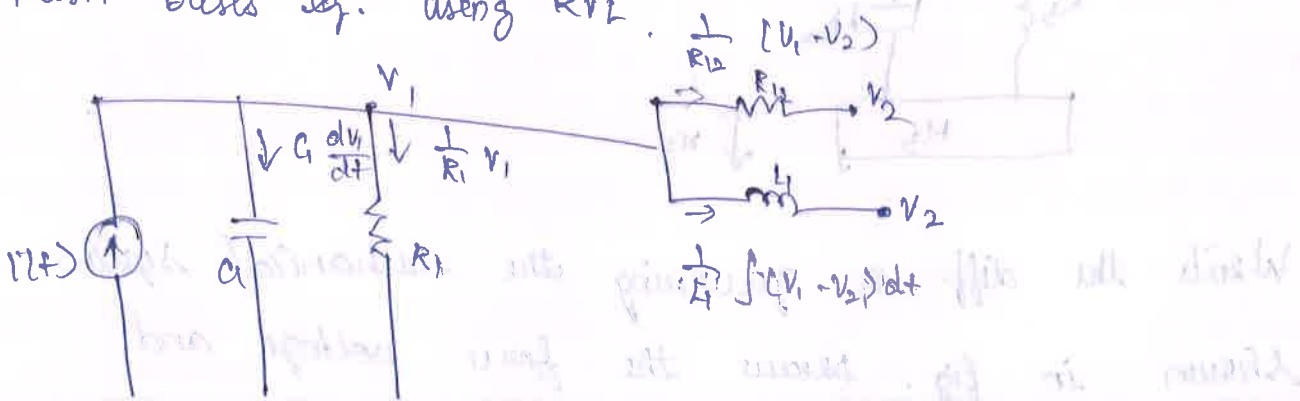 using KVL.
1/R12 (V1 - V2)
V1
R12
V2
C1 dv1/dt
1/R1 V1
L1
V2
i(t)
C1
R1
1/L1 ∫(V1 - V2) dt